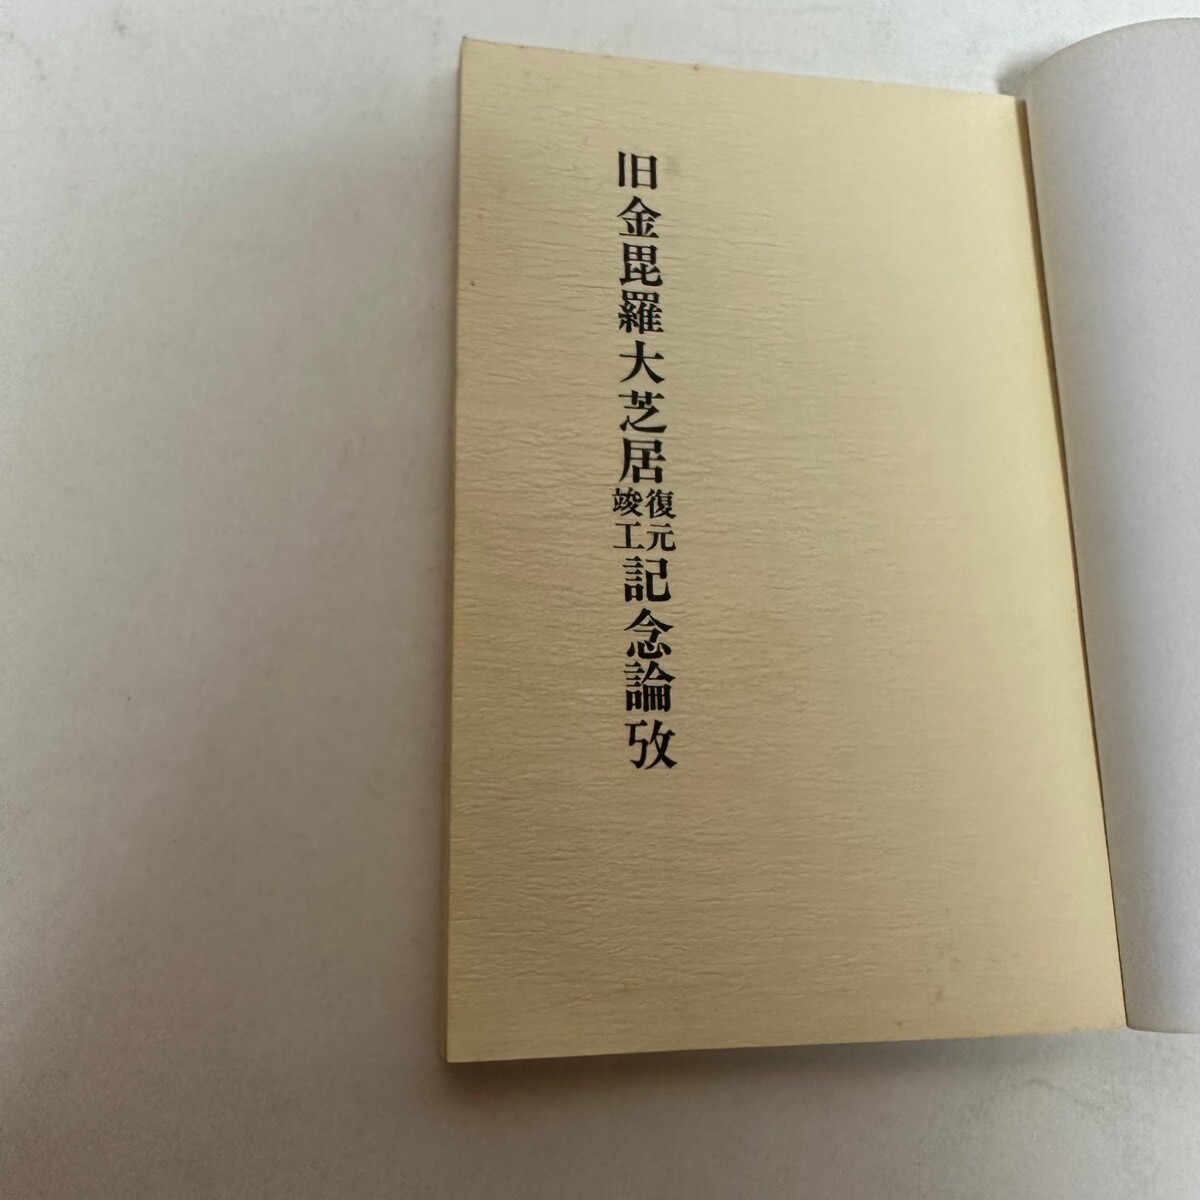 旧金毘羅大芝居復元竣工記念論攷